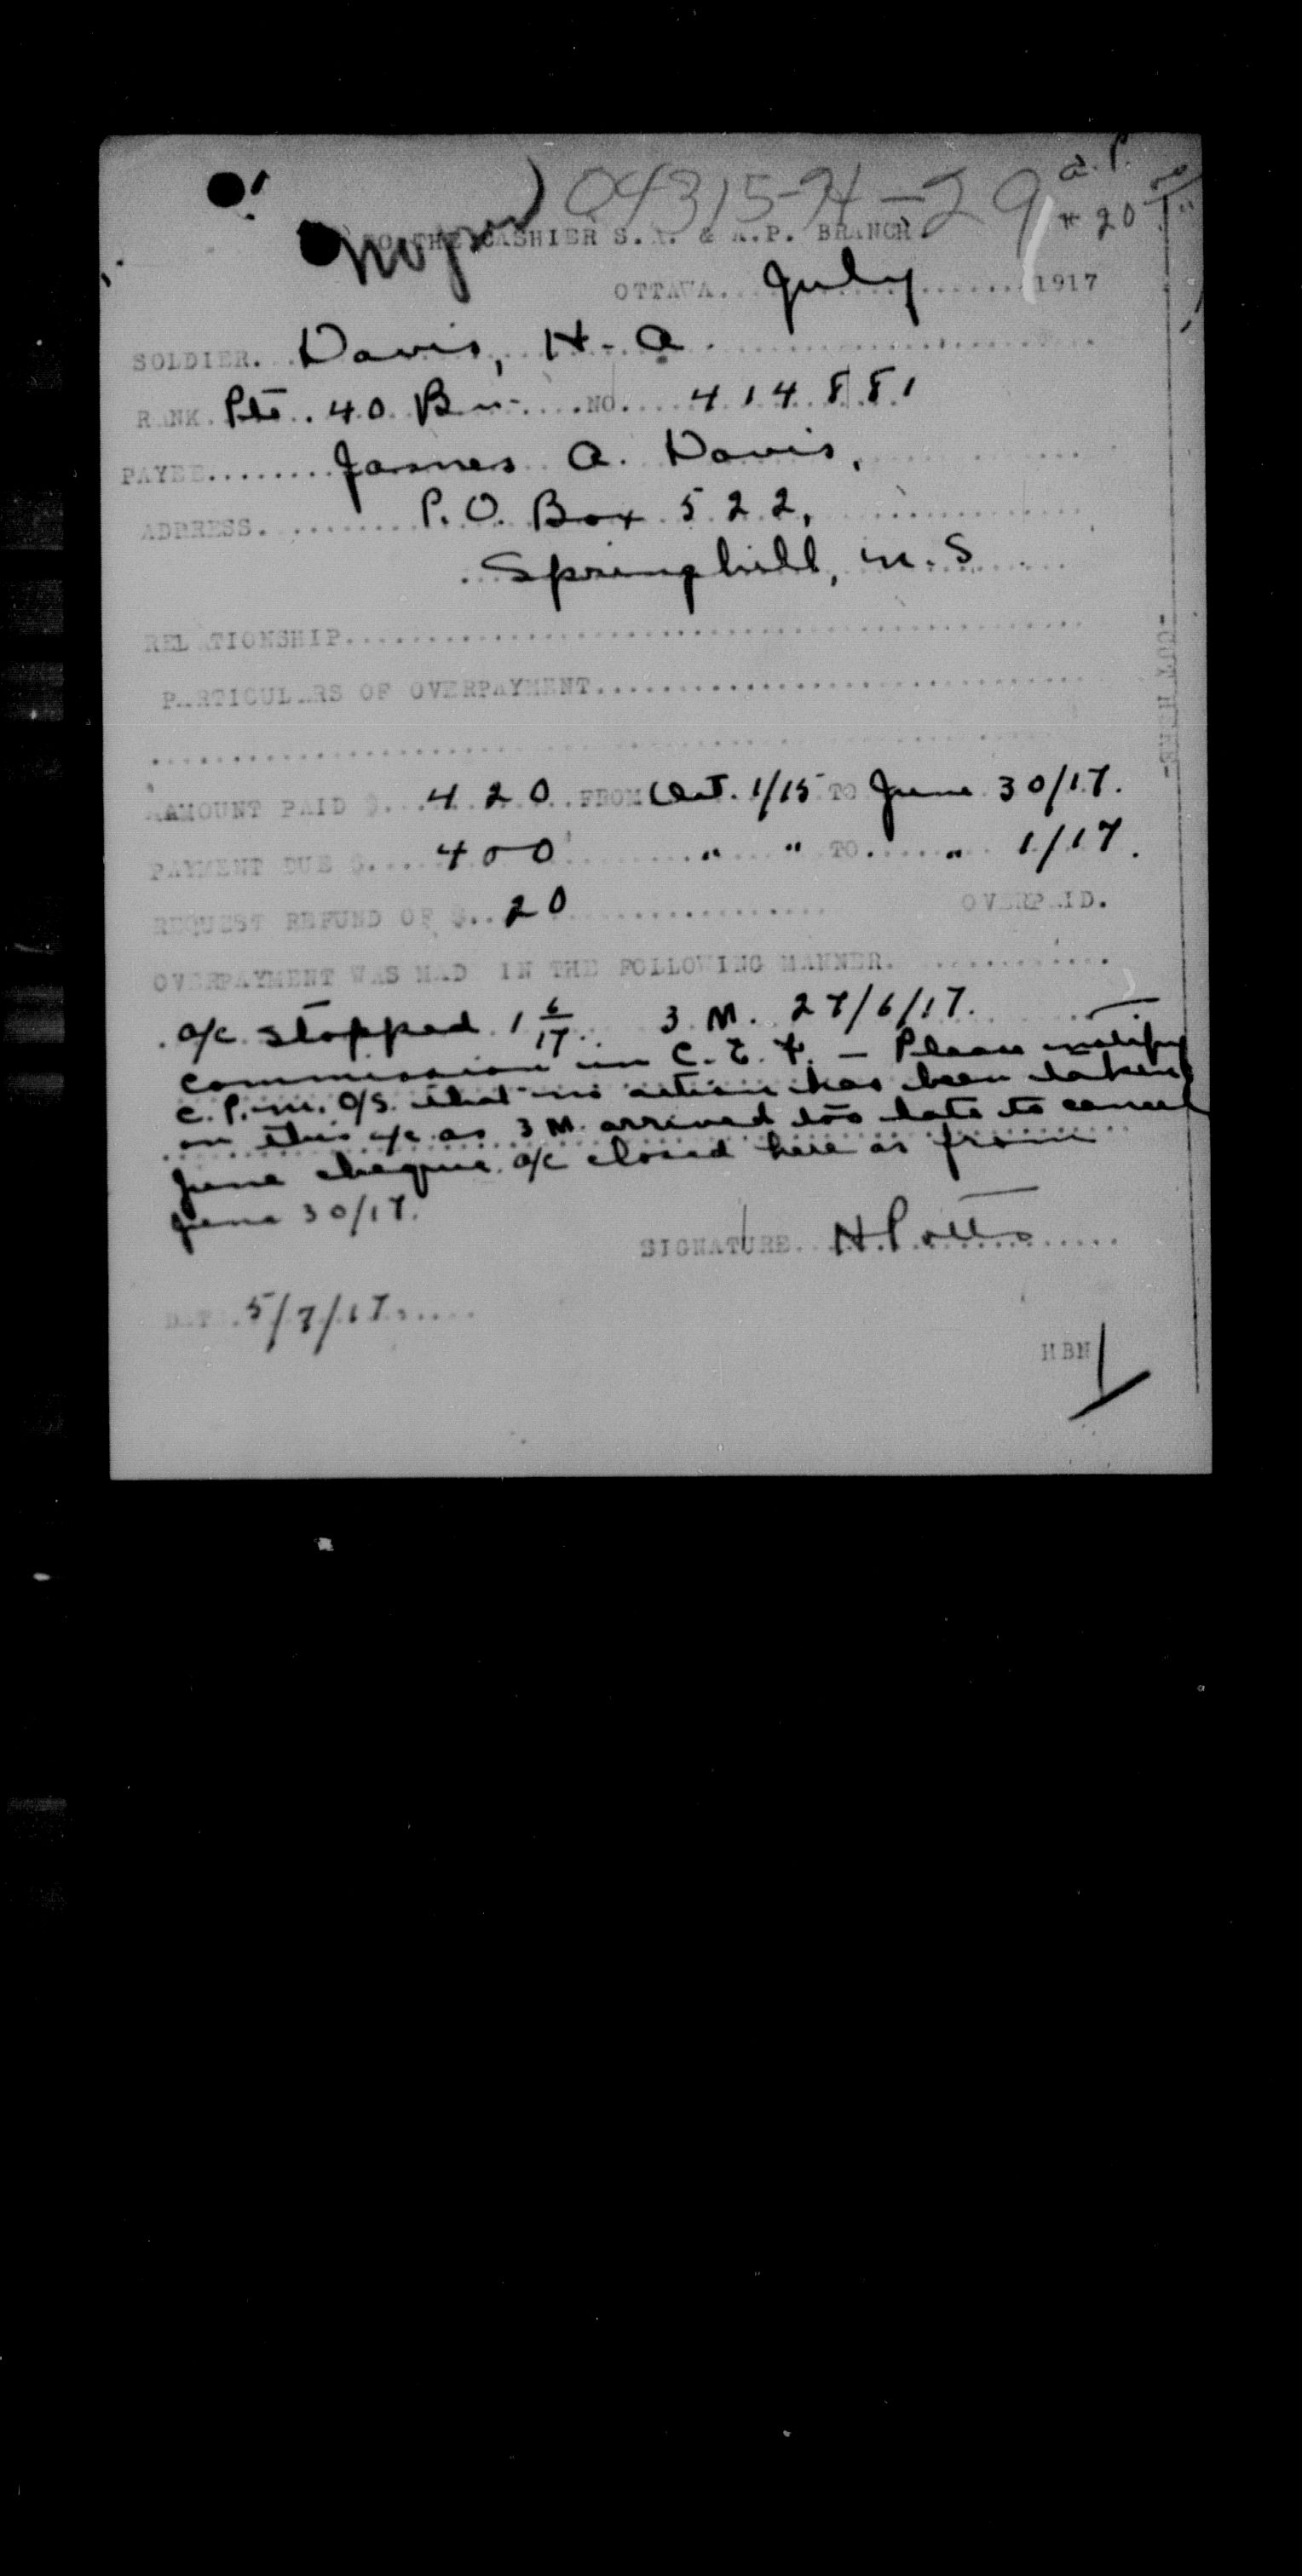 04315-H-29
a. P.
20
TO THE CASHIER S.A. & A.P. BRANCH
OTTAWA.. July ......1917
SOLDIER. Davis, H. A.
RANK. Pte. 40 Bn. NO. 414881
PAYEE........James A. Davis,
ADDRESS......... P.O. Box 522,
Springhill, N.S
RELATIONSHIP..........
PARTICULARS OF OVERPAYMENT..........
AMOUNT PAID $...420..FROM Oct. 1/15 TO June 30/17.
PAYMENT DUE $....400 " " TO..... " 1/17.
REQUEST REFUND OF $..20 OVERPAID.
OVERPAYMENT WAS MADE IN THE FOLLOWING MANNER.
a/c stopped 1 6/17.. 3 M. 27/6/17.
Commission in C.E.F. – Please notify
C.P.M. O/S. that no action has been taken
on this a/c as 3 M. arrived too late to cancel
June cheque. a/c closed here as from
June 30/17.
SIGNATURE. H Potts
DATE. 5/7/17.
HBN